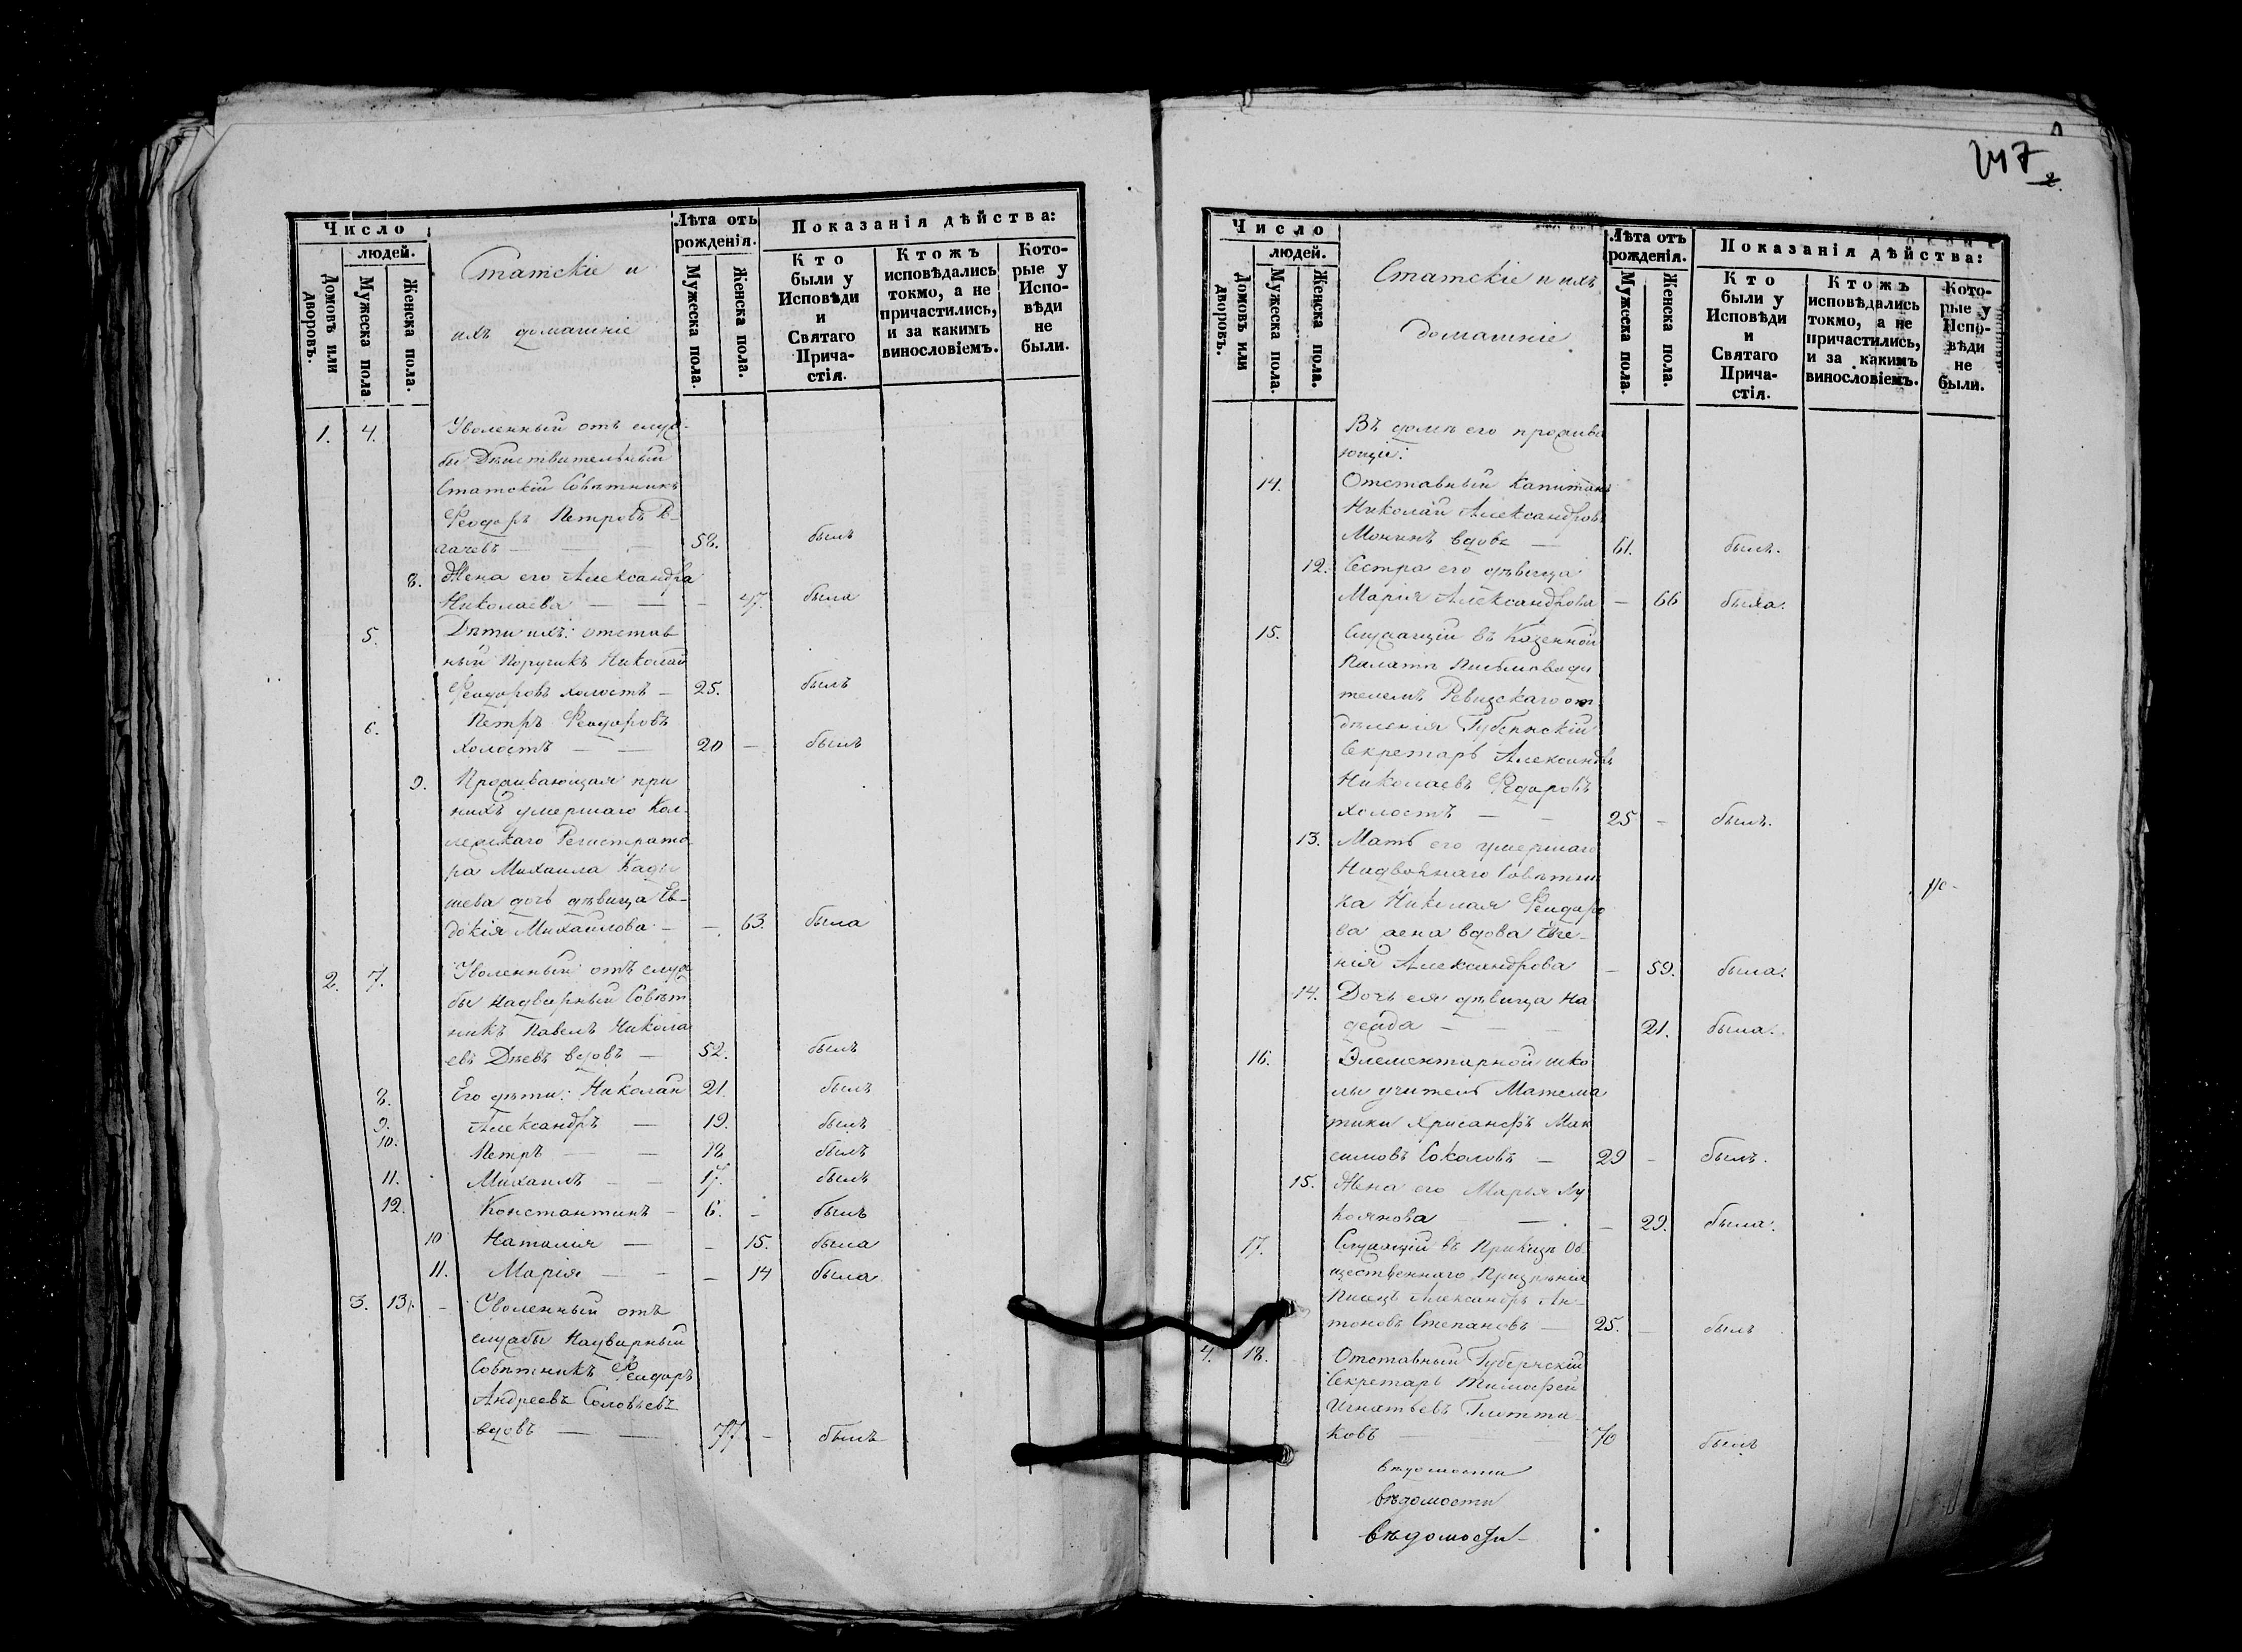 Число
людей.
Домовъ или дворовъ.
Мужеска пола
Женска пола.
Статскіе и
ихъ домашніе
Лѣта отъ
рожденія.
Мужеска пола.
Женска пола.
Показанія дѣйства:
Кто
были у
Исповѣди
и
Святаго
Прича-
стія.
Ктожъ
исповѣдались
токмо, а не
причастились,
и за какимъ
винословіемъ.
Кото-
рые у
Испо-
вѣди
не
были.
1. 4. Уволенный отъ служ-
бы Дѣйствительный
Статскій Совѣтникъ
Ѳеодоръ Петровъ
58. былъ
8. Жена его Александра
Николаева — — — 47. была
5. Дѣти ихъ: отстав
ный Поручикъ Николай
Ѳеодоровъ холостъ — 25. былъ
6. Петръ Ѳеодоровъ
холостъ — — 20 — былъ
9. Проживающая при
нихъ умершаго Кол-
лежскаго Регистрато
ра Михаила
дочь дѣвица Ев-
докія Михайлова — — 63. была
2. 7. Уволенный отъ служ
бы Надворный Совѣт
никъ Павелъ Никола
евъ Дѣевъ вдовъ — 52. былъ
8. Его дѣти: Николай 21. былъ
9. Александръ — 19. былъ
10. Петръ — — 18 былъ
11. Михаилъ — — 17. былъ
12. Константинъ — 6. — былъ
10 Наталия — — 15. была
11. Марія — — — 14 была
3. 13. — Уволенный отъ
службы Надворный
Совѣтникъ Ѳеодоръ
Андреевъ Соловьевъ
вдовъ — — 77 — былъ
247
2.
Число
людей.
Домовъ или дворовъ.
Мужеска пола.
Женска пола.
Статскіе и ихъ
домашніе.
Лѣта отъ
рожденія.
Мужеска пола.
Женска пола.
Показанія дѣйства:
Кто
были у
Исповѣди
и
Святаго
Прича-
стія.
Ктожъ
исповѣдались
токмо, а не
причастились,
и за какимъ
винословіемъ.
Кото-
рые у
Испо-
вѣди
не
были.
Въ домѣ его прожива
ющіе:
14. Отставный Капитанъ
Николай Александровъ
Монинъ вдовъ — 61. былъ.
12. Сестра его дѣвица
Марія Александрова — 66 была.
15. Служащій въ Казенной
Палатѣ Письмоводи
телемъ Ревизскаго от
дѣленія Губернскій
Секретарь Александръ
Николаевъ Ѳедоровъ
холостъ — — 25 — былъ.
13. Мать его умершаго
Надворнаго Совѣтни
ка Николая Ѳеодоро
ва жена вдова
нія Александрова — 59. была.
14. Дочь ея дѣвица На
дежда — — — 21. была.
16. Элементарной шко
лы учитель Матема
тики Хрисанфъ Мак
симовъ Соколовъ — 29 — былъ.
15. Жена его Марья Лу
коянова — — 29. была.
17. Служащій въ Приказѣ Об
щественнаго Призрѣнія
Писецъ Александръ Ан-
тоновъ Степановъ — 25. — былъ
4. 18. Отставный Губернскій
Секретарь Тимофей
Игнатьевъ
ковъ — 70 былъ
вѣдомости
вѣдомости
вѣдомости